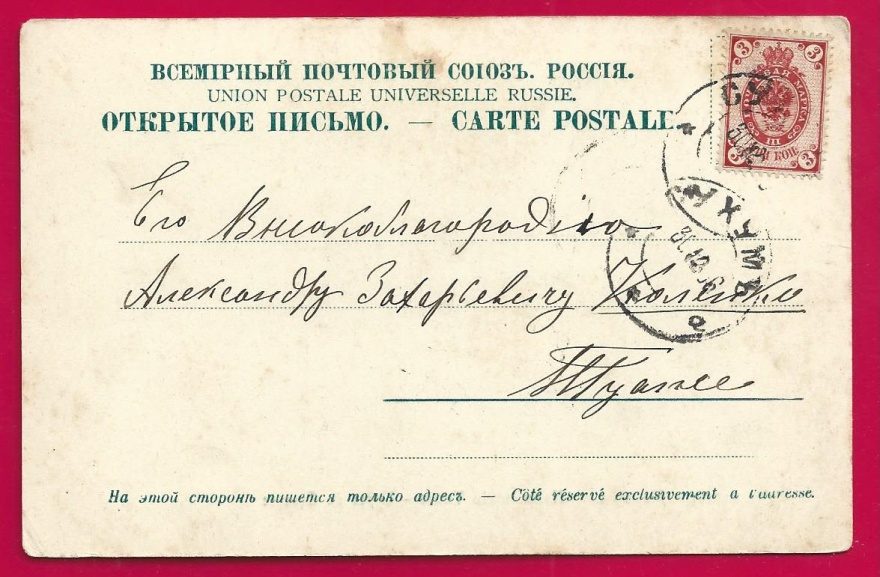 ВСЕМІРНЫЙ ПОЧТОВЫЙ СОЮЗЪ. РОССІЯ.
UNION POSTALE UNIVERSELLE RUSSIE.
ОТКРЫТОЕ ПИСЬМО. — CARTE POSTALE
3 3
3 КОП. 3
СУХУМЪ
Его Высокоблагородію
Александру Захарьевичу
Туапсе
На этой сторонѣ пишется только адресъ. — Côté réservé exclusivement a l'adresse.